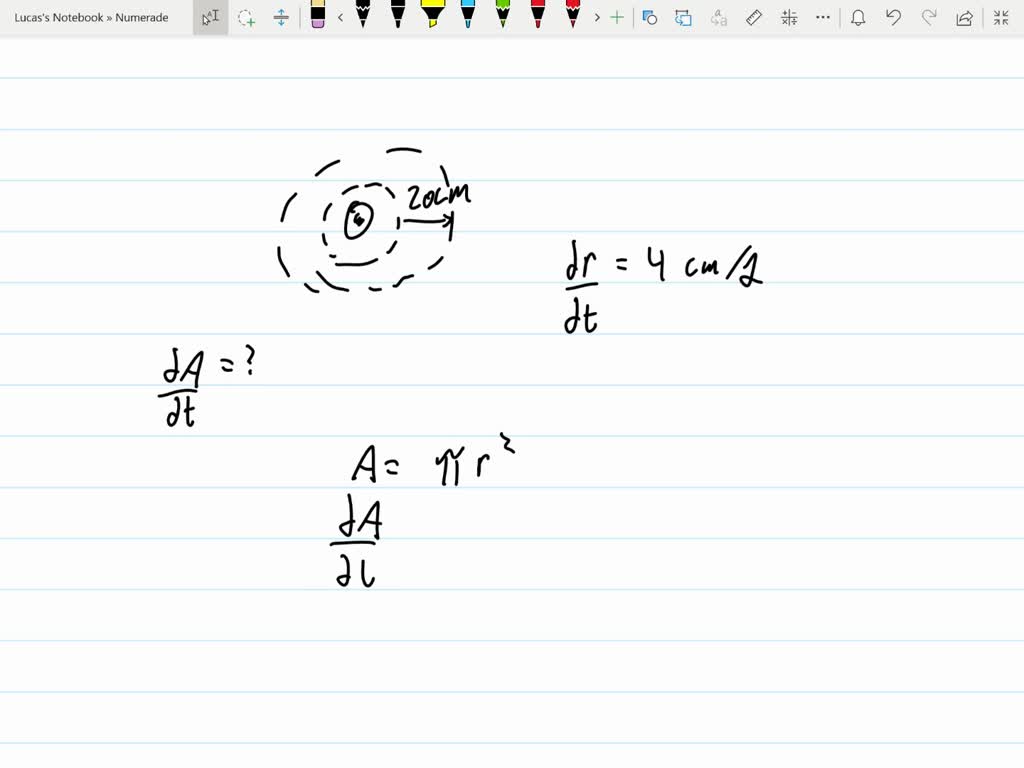 Lucas's Notebook » Numerade
20cm
dr/dt = 4 cm/s
dA/dt = ?
A = πr²
dA/dt